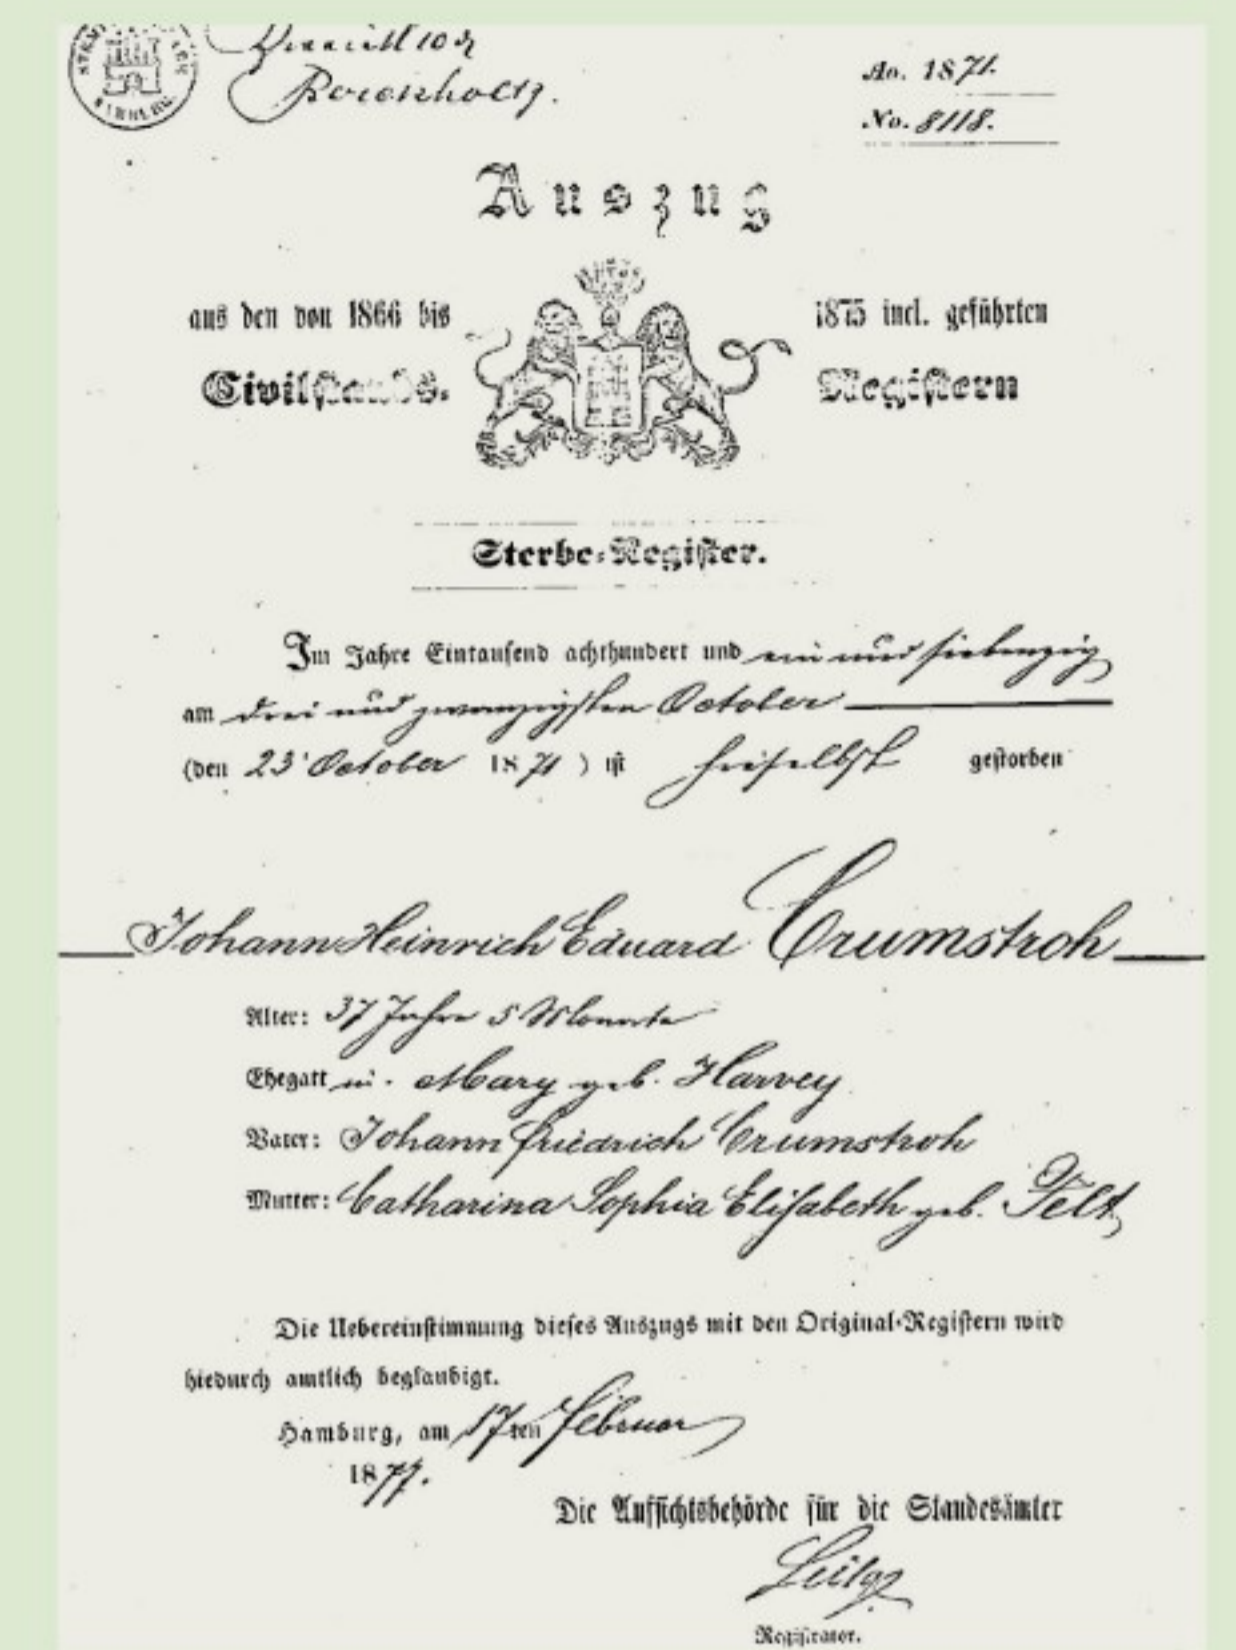 Ao. 1871.
No. 8118.
Auszug
aus den von 1866 bis 1875 incl. geführten
Civilstands- Registern
Sterbe-Register.
Im Jahre Eintausend achthundert und ein und siebenzig
am drei und zwanzigsten October
(den 23 October 1871) ist hieselbst gestorben
Johann Heinrich Eduard Crumstroh
Alter: 37 Jahre 5 Monate
Ehegatt in. Mary geb. Harvey
Vater: Johann Friedrich Crumstroh
Mutter: Catharina Sophia Elisabeth geb. Felt
Die Uebereinstimmung dieses Auszugs mit den Original-Registern wird
hiedurch amtlich beglaubigt.
Hamburg, am 17ten Februar
1877.
Die Aufsichtsbehörde für die Standesämter
Registrator.